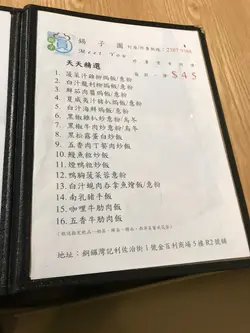 錫子園
Meet You
天天精選
$45
1. 菠菜汁雞柳焗飯/意粉
2. 白汁龍利柳焗飯/意粉
3. 鮮茄肉醬焗飯/意粉
4. 夏威夷汁豬扒焗飯/意粉
5. 白汁海鮮焗飯/意粉
6. 黑椒雞扒炒意粉/烏冬
7. 黑椒豬扒炒意粉/烏冬
8. 黑松露蛋白炒飯
9. 五香肉丁餐肉炒飯
10. 鰻魚粒炒飯
11. 煙鴨粒炒飯
12. 鴨胸菠菜蓉意粉
13. 白汁蜆肉吞拿魚燴飯/意粉
14. 南乳豬手飯
15. 咖哩牛肋肉飯
16. 五香牛肋肉飯
地址：銅鑼灣記利佐治街1號金百利商場5樓R2號舖